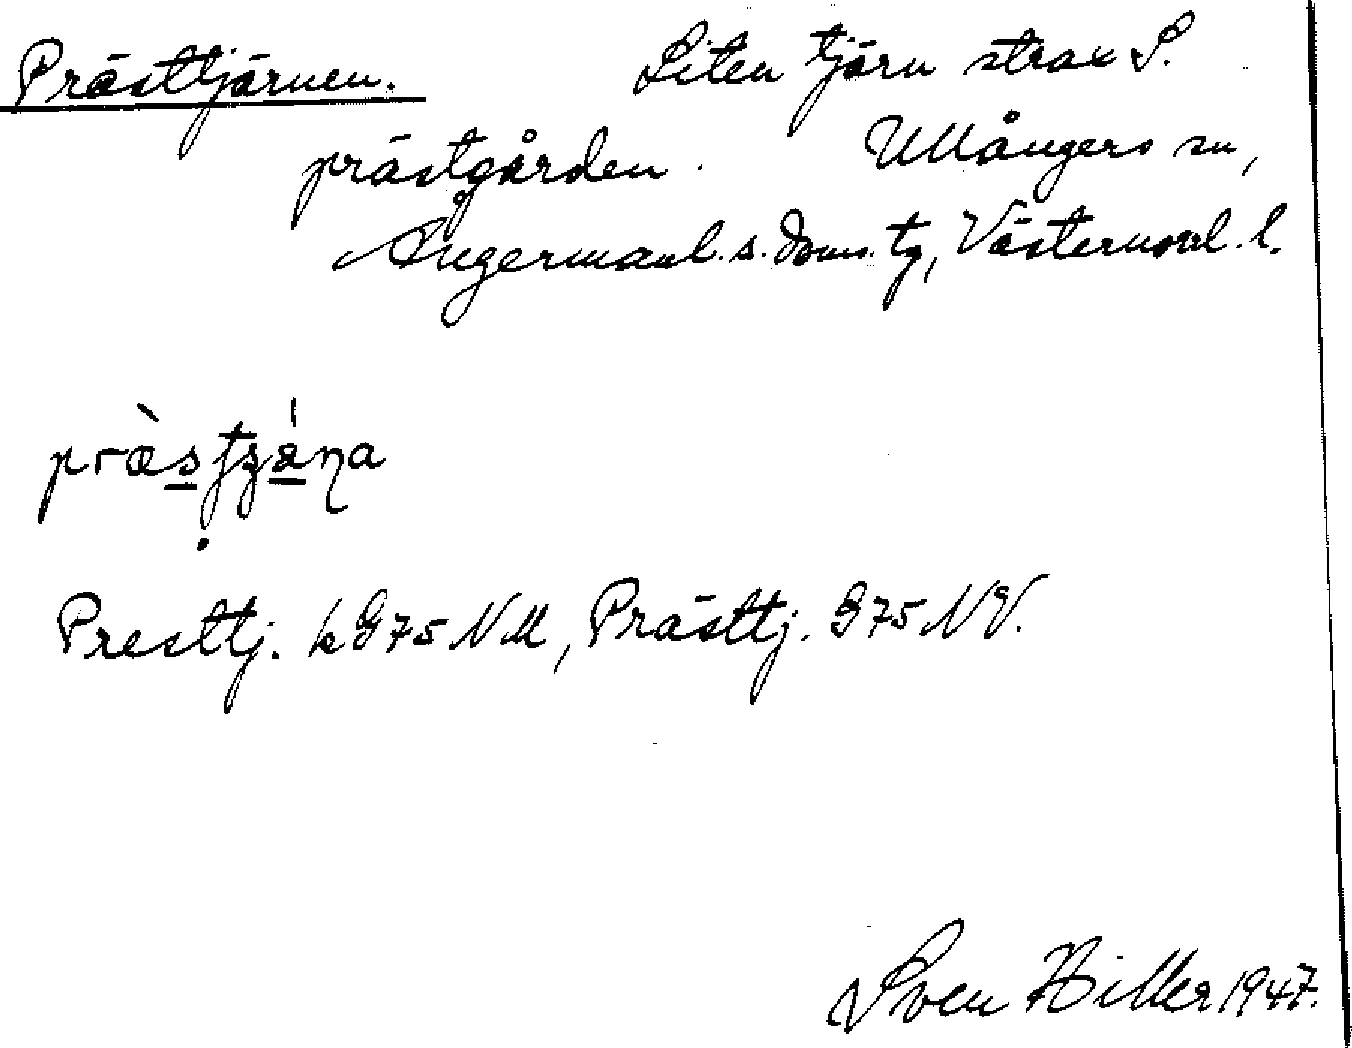 Prästtjärnen. Liten tjärn strax S.
prästgården. Ullångers sn,
Ångermanl. s. doms. tg, Västernorrl. l.
Presttj. k G 75 NM, Prästtj. G 75 NV.
Sven Hiller 1947.